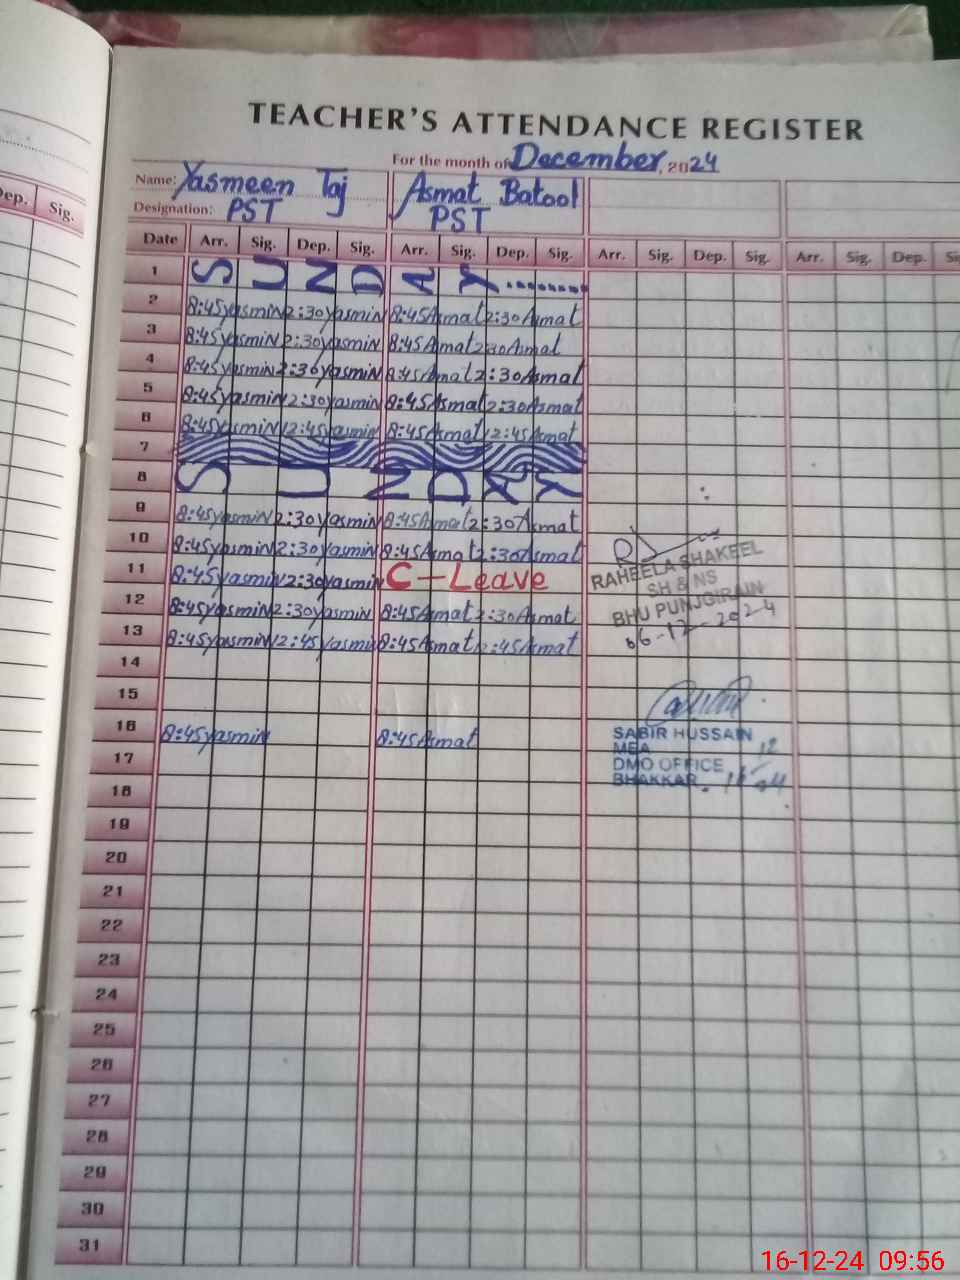 TEACHER'S ATTENDANCE REGISTER
For the month of December, 2024
Name: Yasmeen Taj Asmat Batool
Designation: PST PST
Dep. Sig.
Date Arr. Sig. Dep. Sig. Arr. Sig. Dep. Sig. Arr. Sig. Dep. Sig. Arr. Sig. Dep.
1 S U N D A Y
2 8:45 yasmin 2:30 yasmin 8:45 Asmat 2:30 Asmat
3 8:45 yasmin 2:30 yasmin 8:45 Asmat 2:30 Asmat
4 8:45 yasmin 2:30 yasmin 8:45 Asmat 2:30 Asmat
5 8:45 yasmin 2:30 yasmin 8:45 Asmat 2:30 Asmat
6 8:45 yasmin 12:45 yasmin 8:45 Asmat 12:45 Asmat
7
8 S U N D A Y
9 8:45 yasmin 2:30 yasmin 8:45 Asmat 2:30 Asmat
10 8:45 yasmin 2:30 yasmin 8:45 Asmat 2:30 Asmat
11 8:45 yasmin 2:30 yasmin C-Leave
12 8:45 yasmin 2:30 yasmin 8:45 Asmat 2:30 Asmat
13 8:45 yasmin 12:45 yasmin 8:45 Asmat 12:45 Asmat
14
15
16 8:45 yasmin 8:45 Asmat
17
18
19
20
21
22
23
24
25
26
27
28
29
30
31
RAHEELA SHAKEEL
SH & NS
BHU PUNJGIRAIN
06-12-2024
SABIR HUSSAIN
MEA
DMO OFFICE
BHAKKAR
16-12-24 09:56